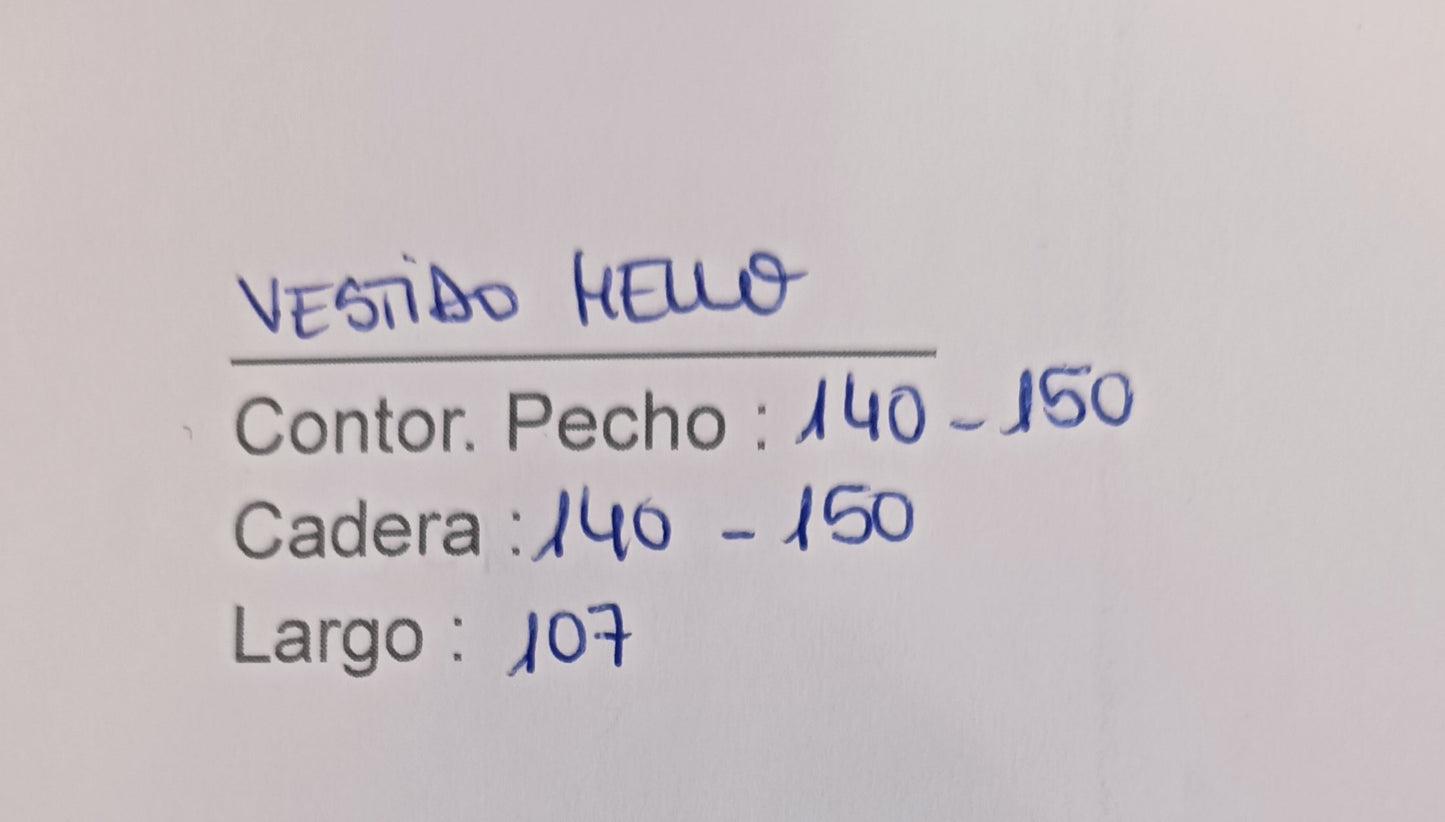 VESTiDO HELLO
Contor. Pecho : 140 - 150
Cadera : 140 - 150
Largo : 107